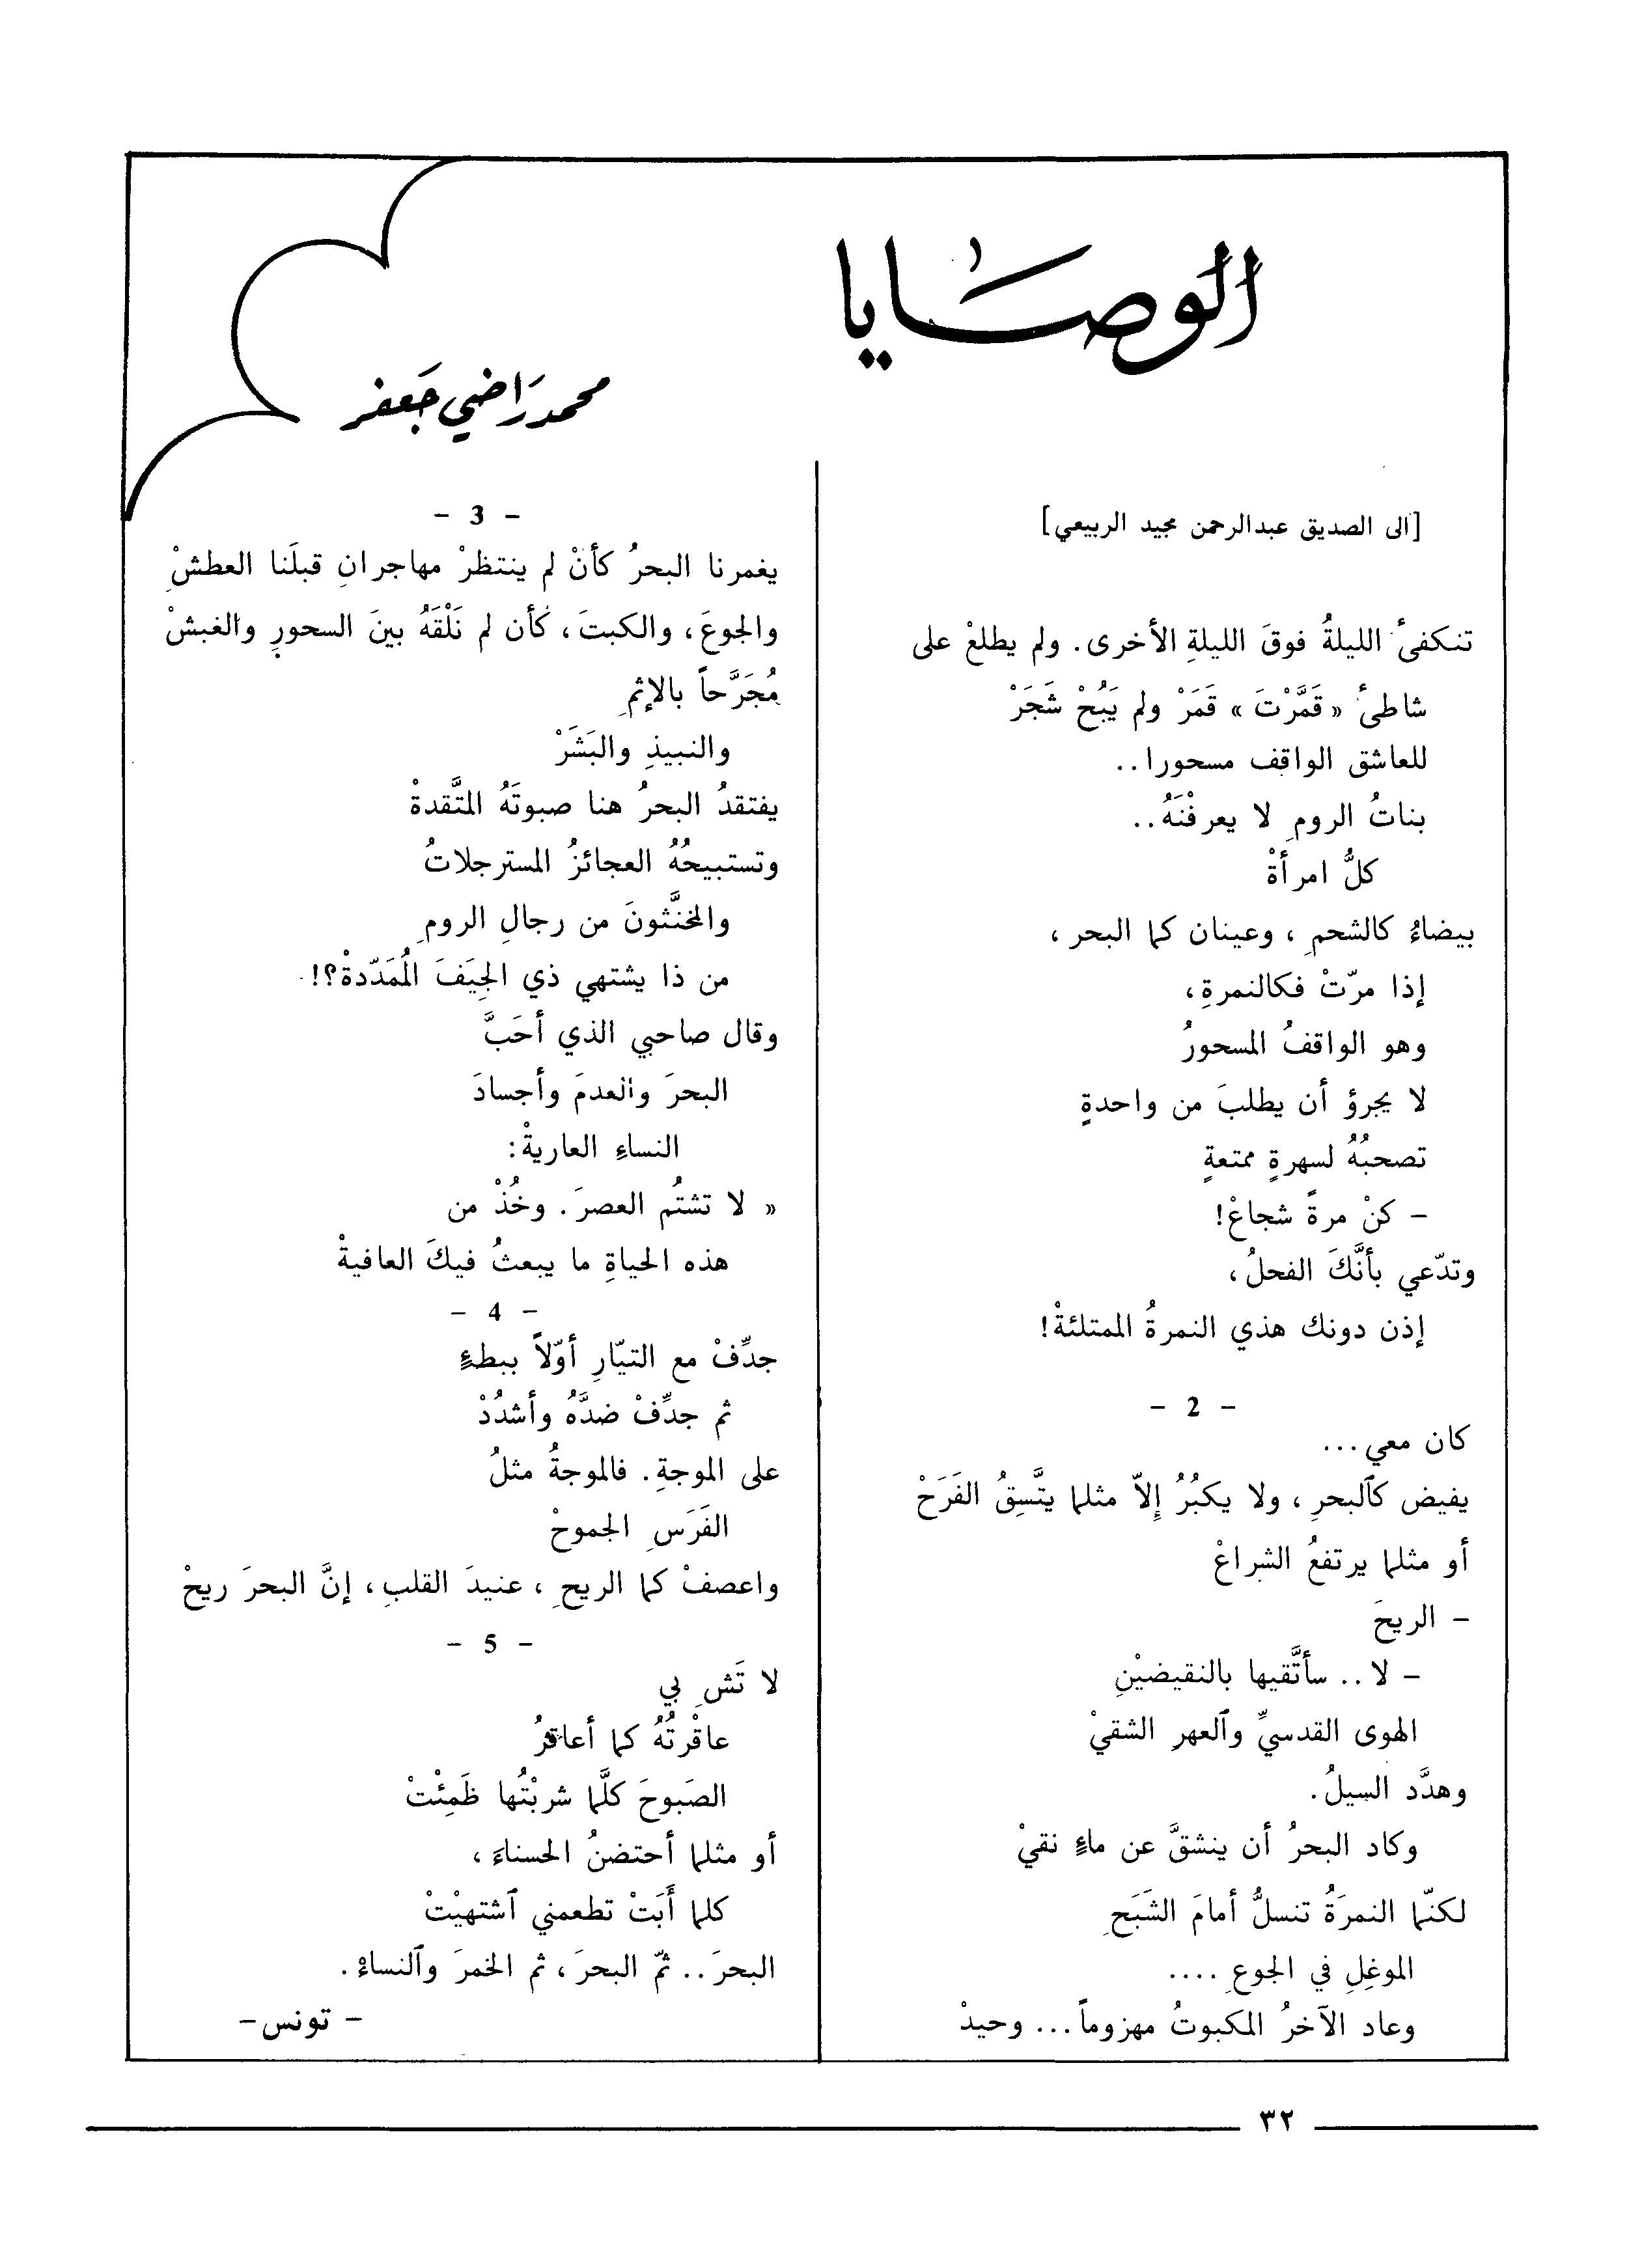 الوصايا
محمد راضي جعفر
[الى الصديق عبدالرحمن مجيد الربيعي]
تنكفئُ الليلةُ فوقَ الليلةِ الأخرى. ولم يطلعْ على
شاطئُ « قَمَّرْتَ » قَمَرْ ولم يَبُحْ شَجَرْ
للعاشق الواقف مسحورا..
بناتُ الرومِ لا يعرفْنَهُ..
كلُّ امرأةْ
بيضاءُ كالشحمِ، وعينان كما البحر،
إذا مرّتْ فكالنمرةِ،
وهو الواقفُ المسحورُ
لا يجرؤ أن يطلبَ من واحدةٍ
تصحبُهُ لسهرةٍ ممتعةٍ
– كنْ مرةً شجاعْ!
وتدّعي بأنَّكَ الفحلُ،
إذن دونك هذي النمرةُ الممتلئةْ!
– 2 –
كان معي...
يفيض كٱلبحرِ، ولا يكبُرُ إلاّ مثلما يتَّسِقُ الفَرَحْ
أو مثلما يرتفعُ الشراعْ
– الريحَ
– لا.. سأتَّقيها بالنقيضيْنِ
الهوى القدسيِّ وٱلعهرِ الشقيْ
وهدَّد السيلُ.
وكاد البحرُ أن ينشقَّ عن ماءٍ نقيْ
لكنّما النمرَةُ تنسلُّ أمامَ الشَبَحِ
الموغِلِ في الجوعِ ....
وعاد الآخرُ المكبوتُ مهزوماً... وحيدْ
– 3 –
يغمرنا البحرُ كأنْ لم ينتظرْ مهاجرانِ قبلَنا العطشْ
والجوعَ، والكبتَ، كأن لم نَلْقَهُ بينَ السحورِ والغبشْ
مُجَرَّحاً بالإثمِ
والنبيذِ والبَشَرْ
يفتقدُ البحرُ هنا صبوتَهُ المتَّقدةْ
وتستبيحُهُ العجائزُ المسترجلاتُ
والمخنَّثونَ من رجالِ الرومِ
من ذا يشتهي ذي الجِيَفَ المُمَدّدةْ؟!
وقال صاحبي الذي أحَبَّ
البحرَ والعدمَ وأجسادَ
النساءِ العاريةْ:
« لا تشتُم العصرَ. وخُذْ من
هذه الحياةِ ما يبعثُ فيكَ العافيةْ
– 4 –
جدِّفْ مع التيّارِ أوّلاً ببطءٍ
ثم جدِّفْ ضدَّهُ وأشدُدْ
على الموجةِ. فالموجةُ مثلُ
الفَرَسِ الجموحْ
واعصفْ كما الريحِ، عنيدَ القلبِ، إنَّ البحرَ ريحْ
– 5 –
لا تَشِ بي
عاقْرتُهُ كما أعاقرُ
الصَبوحَ كلَّما شربْتُها ظَمِئْتْ
أو مثلما أحتضنُ الحسناءَ،
كلما أَبَتْ تطعمني ٱشتهيْتْ
البحرَ.. ثمّ البحرَ، ثم الخمرَ وٱلنساءْ.
– تونس –
٣٢